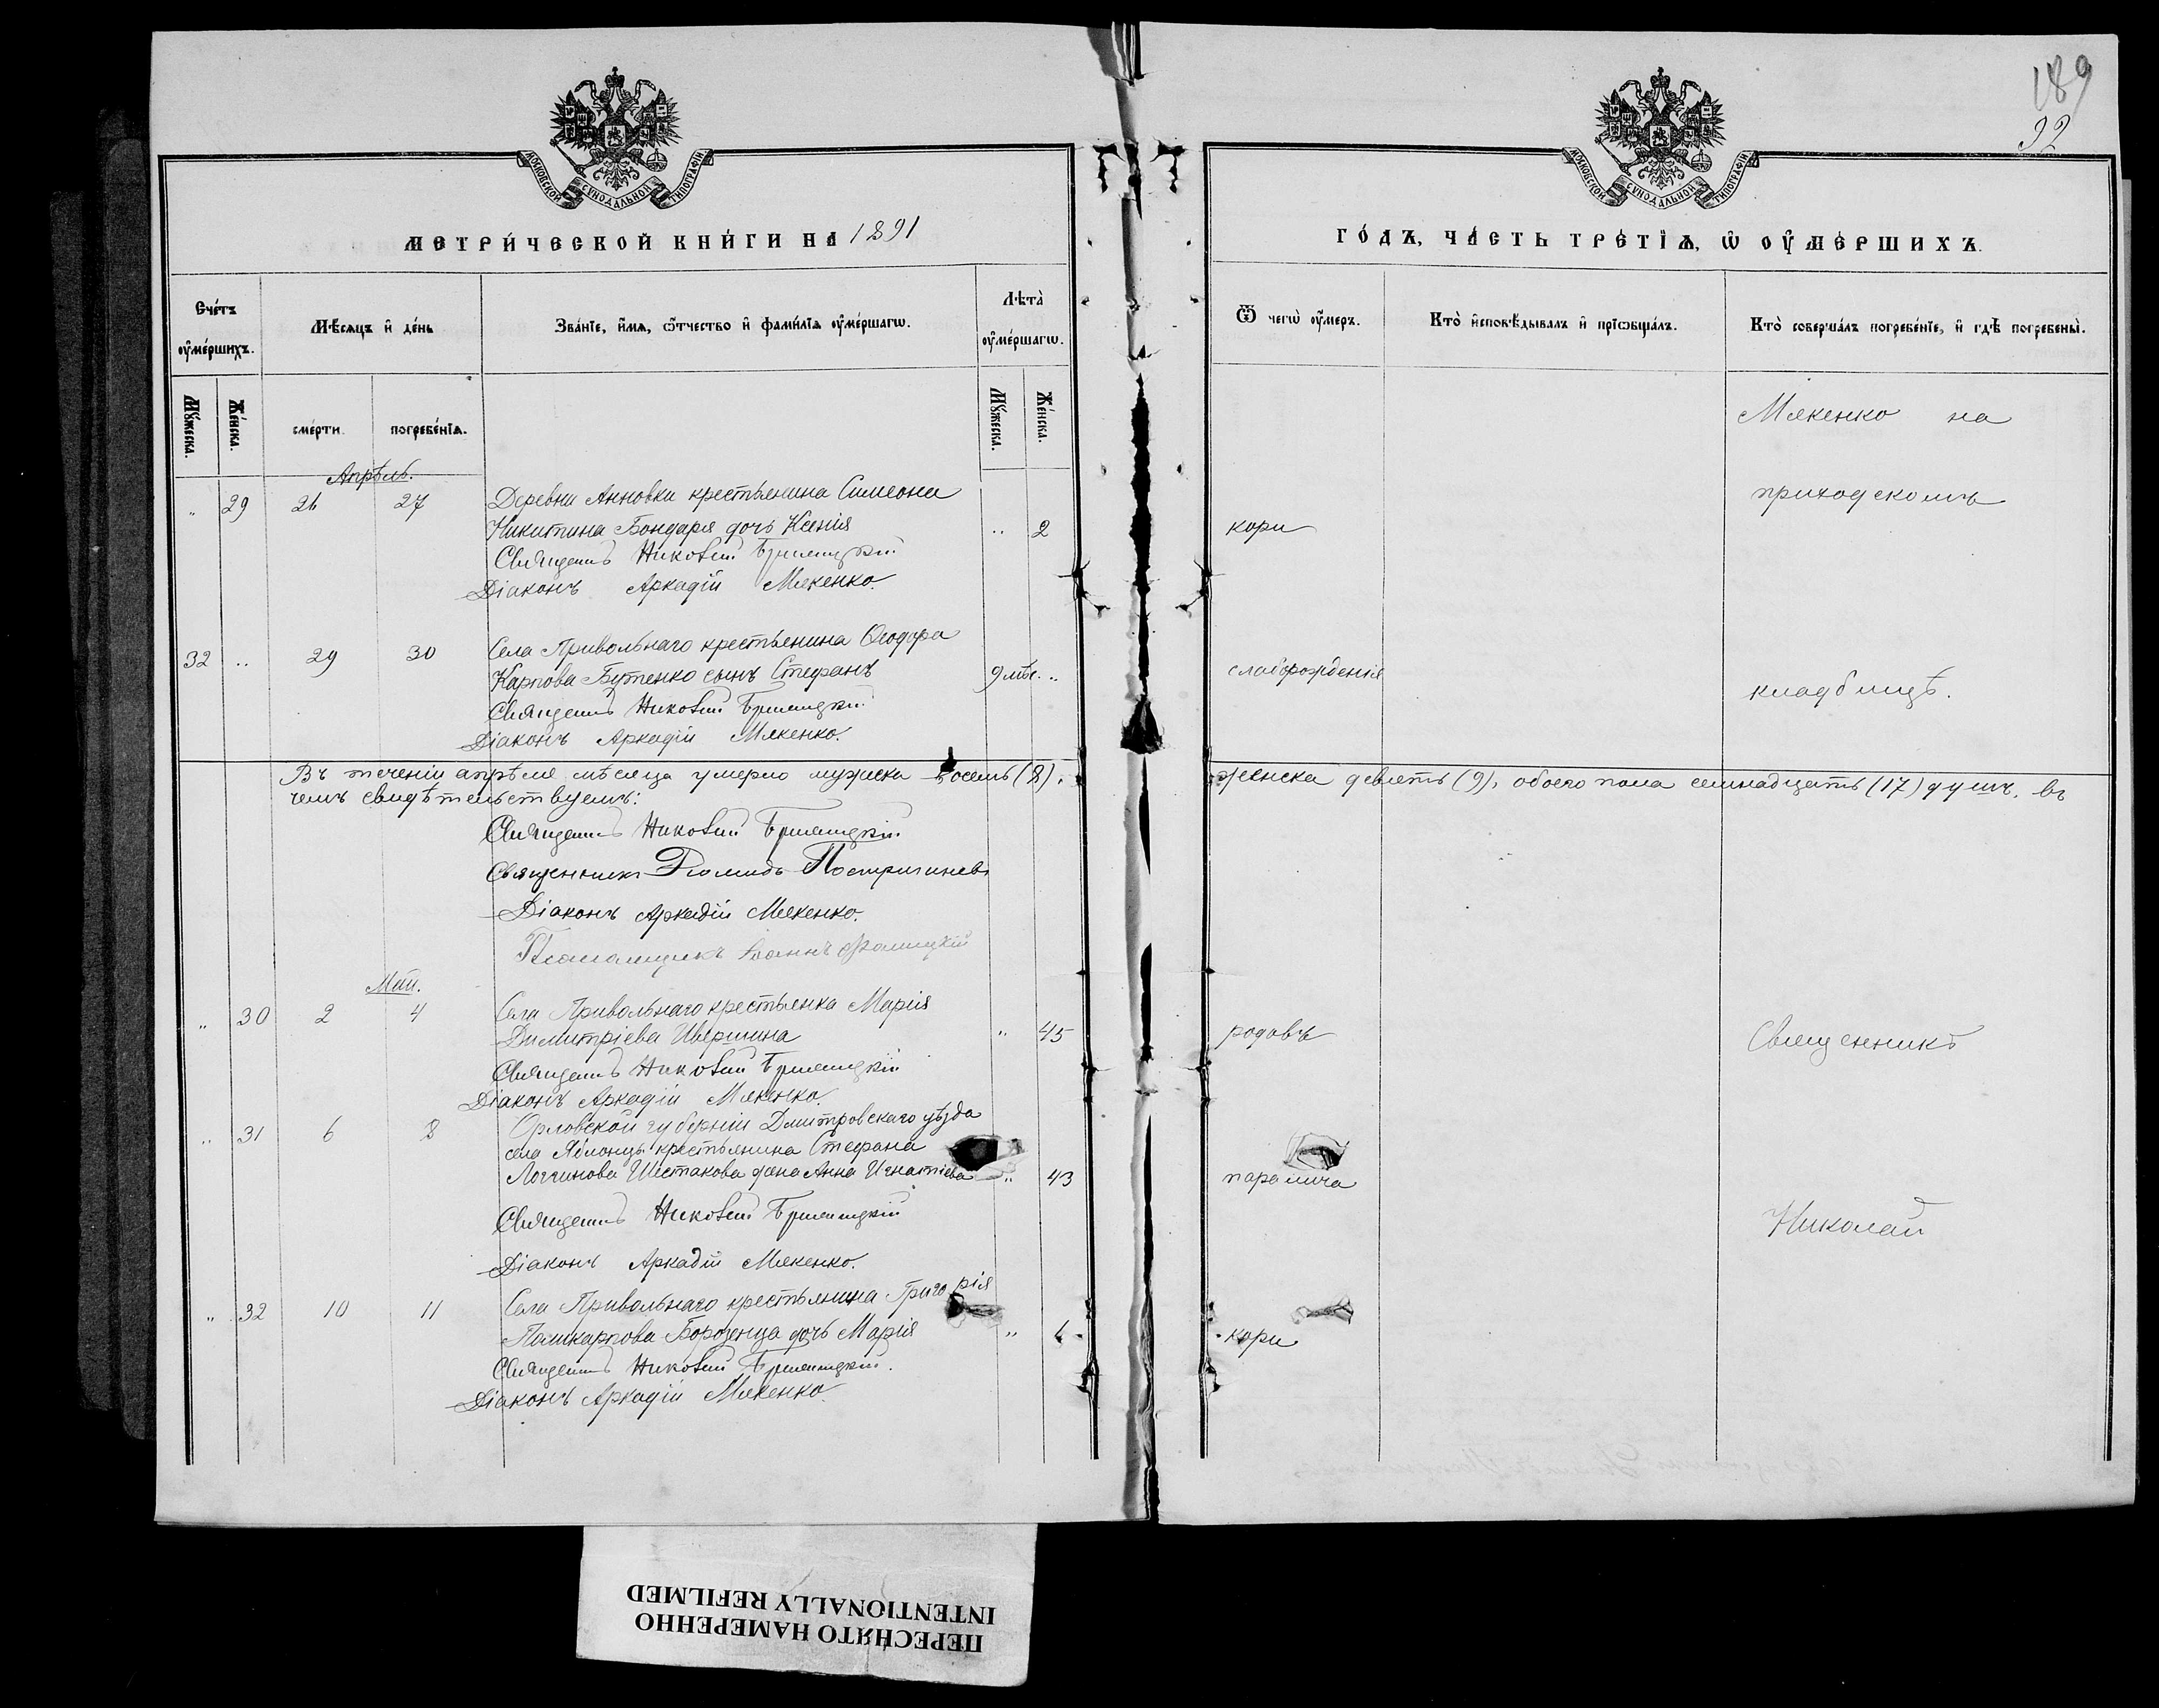 189
92
МОСКОВСКОЙ СѴНОДАЛЬНОЙ ТИПОГРАФІИ
МЕТРИ́ЧЕСКОЙ КНИ́ГИ НА 1891
Сче́тъ ᲂу҆ме́ршихъ.
Мѣ́сяцъ и҆ де́нь
Зва́нїе, и҆́мя, ѻ҆́тчество и҆ фами́лїѧ ᲂу҆ме́ршагѡ.
Лѣ́та ᲂу҆ме́ршагѡ.
Мꙋ́жеска.
Же́нска.
сме́рти.
погребе́нїѧ.
Мꙋ́жеска.
Же́нска.
Апрѣль.
" 29 26 27 Деревни Анновки крестьянина Симеона
Никитина Бондаря дочь Ксенія .. 2
Священникъ Николай
Діаконъ Аркадій Мякенко.
32 .. 29 30 Села Привольнаго крестьянина Ѳеодора
Карпова Бутенко сынъ Стефанъ 9 мѣс. "
Священникъ Николай
Діаконъ Аркадій Мякенко.
Въ теченіи апрѣля мѣсяца умерло мужеска восемь (8),
чемъ свидѣтельствуемъ:
Священникъ Николай
Священникъ Діомидъ
Діаконъ Аркадій Мякенко.
Псаломщикъ Іоаннъ
Май.
" 30 2 4 Села Привольнаго крестьянка Марія
Димитріева Ивершина " 45
Священникъ Николай
Діаконъ Аркадій Мякенко.
.. 31 6 8 Орловской губерніи Дмитровскаго уѣзда
села Яблонцъ крестьянина Стефана
Логгинова Шестакова жена Анна Игнатіева " 43
Священникъ Николай
Діаконъ Аркадій Мякенко.
" 32 10 11 Села Привольнаго крестьянина Григорія
Поликарпова Борозенца дочь Марія "
Священникъ Николай
Діаконъ Аркадій Мякенко
МОСКОВСКОЙ СѴНОДАЛЬНОЙ ТИПОГРАФІИ
ГО́ДЪ, ЧА́СТЬ ТРЕ́ТЇѦ, Ѡ ОУ҆МЕ́РШИХЪ.
Ѿ чегѡ̀ ᲂу҆́меръ.
Кто̀ и҆сповѣ́дывалъ и҆ прїѡбща́лъ.
Кто̀ соверша́лъ погребе́нїе, и҆ гдѣ̀ погребены̀.
Мякенко на
приходскомъ
кори
слаборожденія
кладбищѣ.
женска девять (9), обоего пола семнадцать (17) душъ, въ
родовъ
Священникъ
паралича
Николай
кори
ПЕРЕСНЯТО НАМЕРЕННО
INTENTIONALLY REFILMED